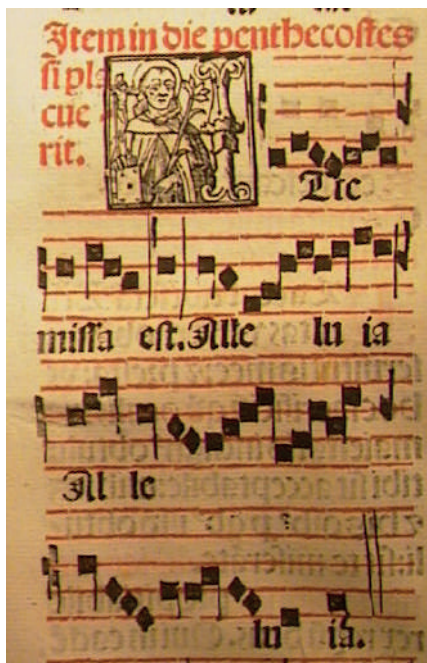 Item in die penthecostes
si pla
cue
rit.
I Tie
missa est. Alle lu ia
Al le
lu ia.